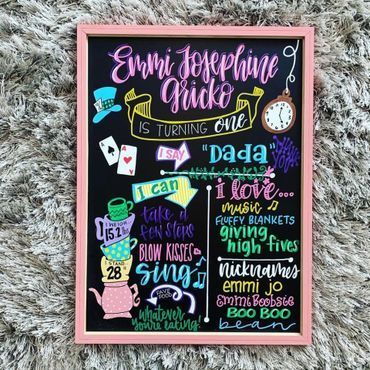 Emmi Josephine
Gricko
IS TURNING one
I SAY
"DADA"
I can
take a
few steps
BLOW KISSES
sing
SAVE FOOD
whatever
you're eating!
I WEIGH
15.2 lbs
I STAND
28"
i love...
music
FLUFFY BLANKETS
giving
high fives
nicknames
emmi jo
Emmi Boobsie
BOO BOO
bean